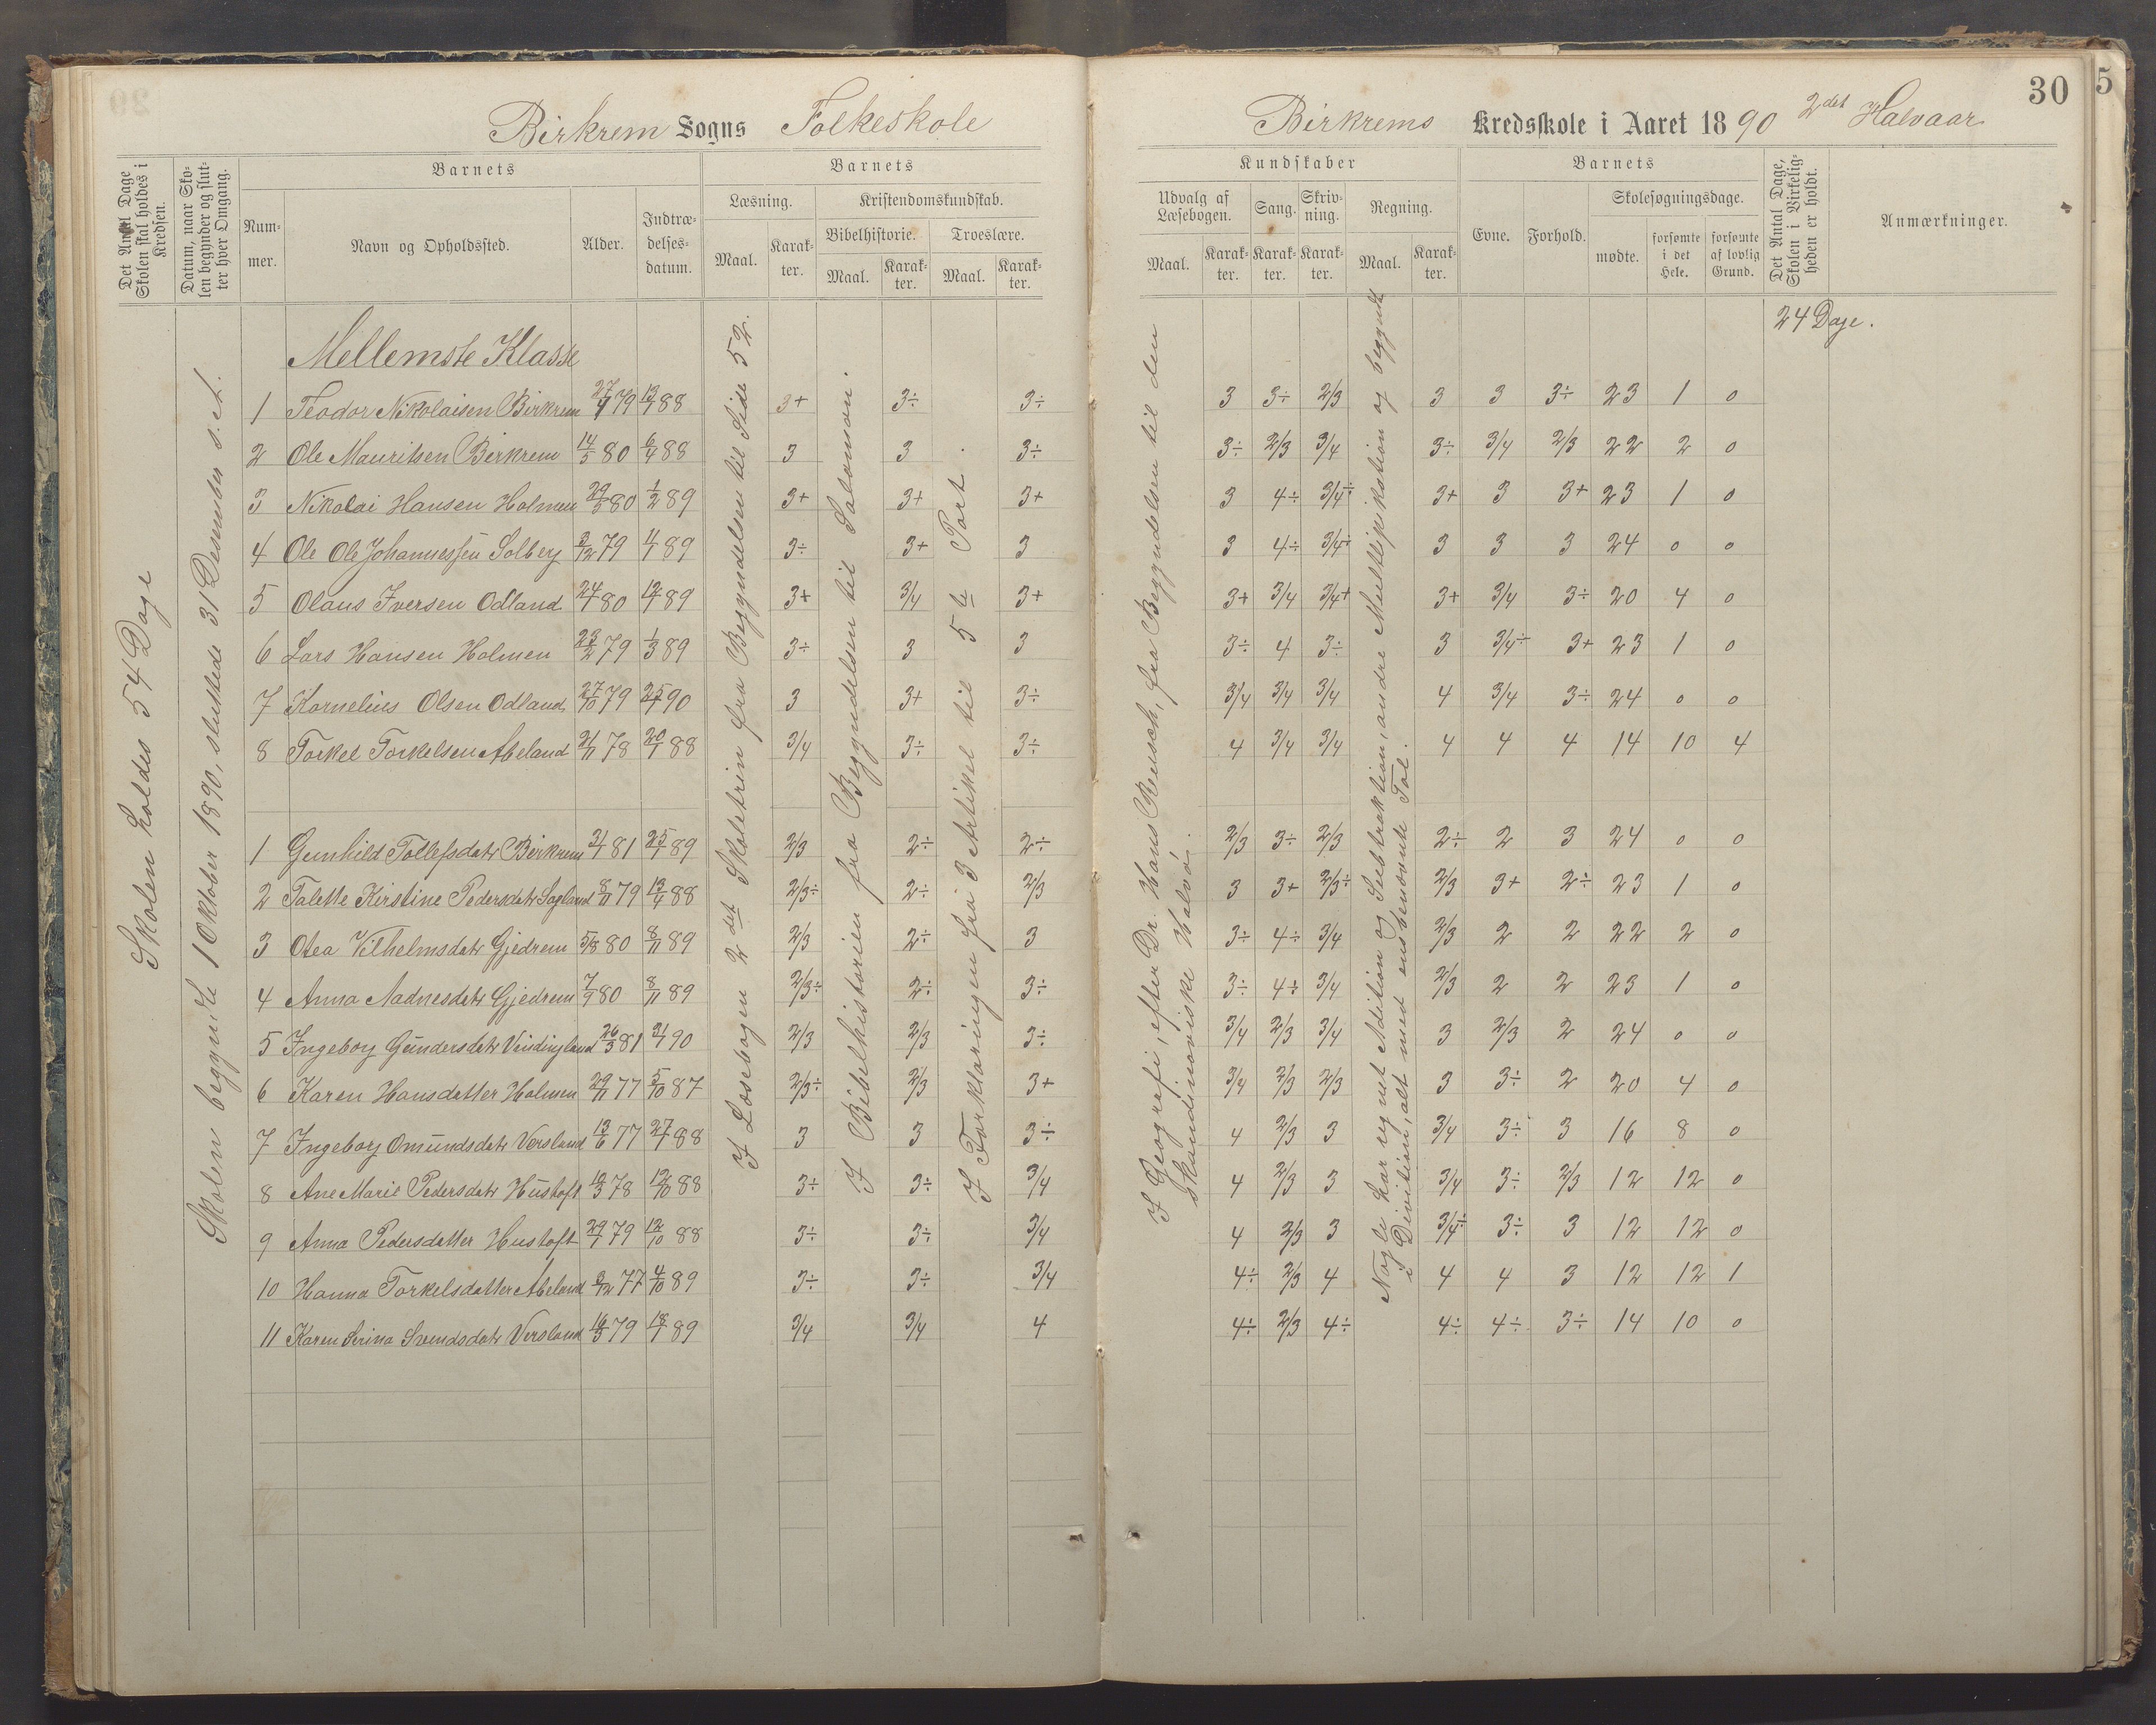 Birkrem Sogns Folkeskole
Det Antal Dage Skolen skal holdes i Kredsen.
Datum, naar Skolen begynder og slutter hver Omgang.
Barnets
Nummer.
Navn og Opholdssted.
Alder.
Indtrædelsesdatum.
Barnets
Læsning.
Maal.
Karakter.
Kristendomskundskab.
Bibelhistorie.
Maal.
Karakter.
Troeslære.
Maal.
Karakter.
Skolen holdes 54 Dage
Skolen begyndte 1 Oktober 1890, sluttede 31 Desember s. A.
I Læsebogen 2det Skoletrin fra Begyndelsen til Side 52.
I Bibelhistorien fra Begyndelsen til Salomon.
I Forklaringen fra 3 Artikel til 5te Part.
Mellemste Klasse
1 Teodor Nikolaisen Birkrem 27/4 79 13/4 88 3+ 3÷ 3÷
2 Ole Mauritsen Birkrem 14/5 80 6/4 88 3 3 3÷
3 Nikolai Hansen Holmen 29/5 80 1/2 89 3+ 3+ 3+
4 Ole Ole Johannessen Solberg 3/12 79 4/1 89 3÷ 3+ 3
5 Olaus Iversen Odland 24/1 80 12/1 89 3+ 3/4 3+
6 Lars Hansen Holmen 23/2 79 1/3 89 3÷ 3 3
7 Kornelius Olsen Odland 27/10 79 25/1 90 3 3+ 3÷
8 Torkel Torkelsen Abeland 21/11 78 20/1 88 3/4 3÷ 3÷
1 Gunhild Tollefsdatr Birkrem 31/1 81 25/1 89 2/3 2÷ 2÷
2 Talette Kirstine Pedersdatr Sagland 8/11 79 13/4 88 2/3÷ 2÷ 2/3
3 Otea Vilhelmsdatr Gjedrem 5/8 80 8/11 89 2/3 2÷ 3
4 Anna Aadnesdatr Gjedrem 7/9 80 8/11 89 2/3÷ 2÷ 3÷
5 Ingeborg Gundersdatr Vindingland 26/3 81 31/1 90 2/3 2/3 3÷
6 Karen Hansdatter Holmen 29/11 77 5/10 87 2/3÷ 2/3 3+
7 Ingeborg Omundsdatr Versland 13/6 77 27/1 88 3 3 3÷
8 Ane Marie Pedersdatr Hustoft 12/3 78 12/10 88 3÷ 3÷ 3/4
9 Anna Pedersdatter Hustoft 29/1 79 12/10 88 3÷ 3÷ 3/4
10 Hanna Torkelsdatter Abeland 3/12 77 4/10 89 3÷ 3÷ 3/4
11 Karen Serina Svendsdatr Versland 16/3 79 18/1 89 3/4 3/4 4
30
5
Birkrems Kredsskole i Aaret 1890 2det Halvaar
Kundskaber
Udvalg af Læsebogen.
Maal.
Karakter.
Sang.
Karakter.
Skrivning.
Karakter.
Regning.
Maal.
Karakter.
Barnets
Evne.
Forhold.
Skolesøgningsdage.
mødte.
forsømte i det Hele.
forsømte af lovlig Grund.
Det Antal Dage, Skolen i Virkeligheden er holdt.
Anmærkninger.
24 Dage.
I Geografi, efter Dr. Hans Reusch, fra Begyndelsen til den
skandinaviske Halvø.
Nogle har regnet Adition og Subtraktion, andre Multiplikation og begyndt
i Division, alt med ensbenævnte Tal.
3 3÷ 2/3 3 3 3÷ 23 1 0
3÷ 2/3 3/4 3÷ 3/4 2/3 22 2 0
3 4÷ 3/4÷ 3+ 3 3+ 23 1 0
3 4÷ 3/4÷ 3 3 3 24 0 0
3+ 3/4 3/4+ 3+ 3/4 3÷ 20 4 0
3÷ 4 3÷ 3 3/4÷ 3+ 23 1 0
3/4 3/4 3/4 4 3/4 3÷ 24 0 0
4 3/4 3/4 4 4 4 14 10 4
2/3 3÷ 2/3 2÷ 2 3 24 0 0
3 3+ 2/3÷ 2/3 3+ 2÷ 23 1 0
3÷ 4÷ 3/4 2/3 2 2 22 2 0
3÷ 4÷ 3/4 2/3 2 2 23 1 0
3/4 2/3 3/4 3 2/3 2 24 0 0
3/4 2/3 2/3 3 3÷ 2 20 4 0
4 2/3 3 3/4 3÷ 3 16 8 0
4 2/3 3 3/4 3÷ 2/3 12 12 0
4 2/3 3 3/4÷ 3÷ 3 12 12 0
4÷ 2/3 4 4 4 3 12 12 1
4÷ 2/3 4÷ 4÷ 4÷ 3÷ 14 10 0